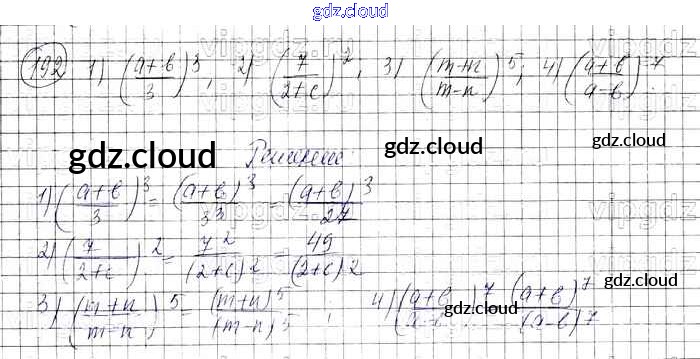 gdz.cloud
192 1) ((a+b)/3)^3, 2) (7/(2+c))^2, 3) ((m+n)/(m-n))^5; 4) ((a+b)/(a-b))^7
gdz.cloud gdz.cloud
Решение:
1) ((a+b)/3)^3 = (a+b)^3/3^3 = (a+b)^3/27
vipgdz
2) (7/(2+c))^2 = 7^2/(2+c)^2 = 49/(2+c)^2
gdz.cloud
3) ((m+n)/(m-n))^5 = (m+n)^5/(m-n)^5; 4) ((a+b)/(a-b))^7 (a+b)^7/(a-b)^7
gdz.cloud